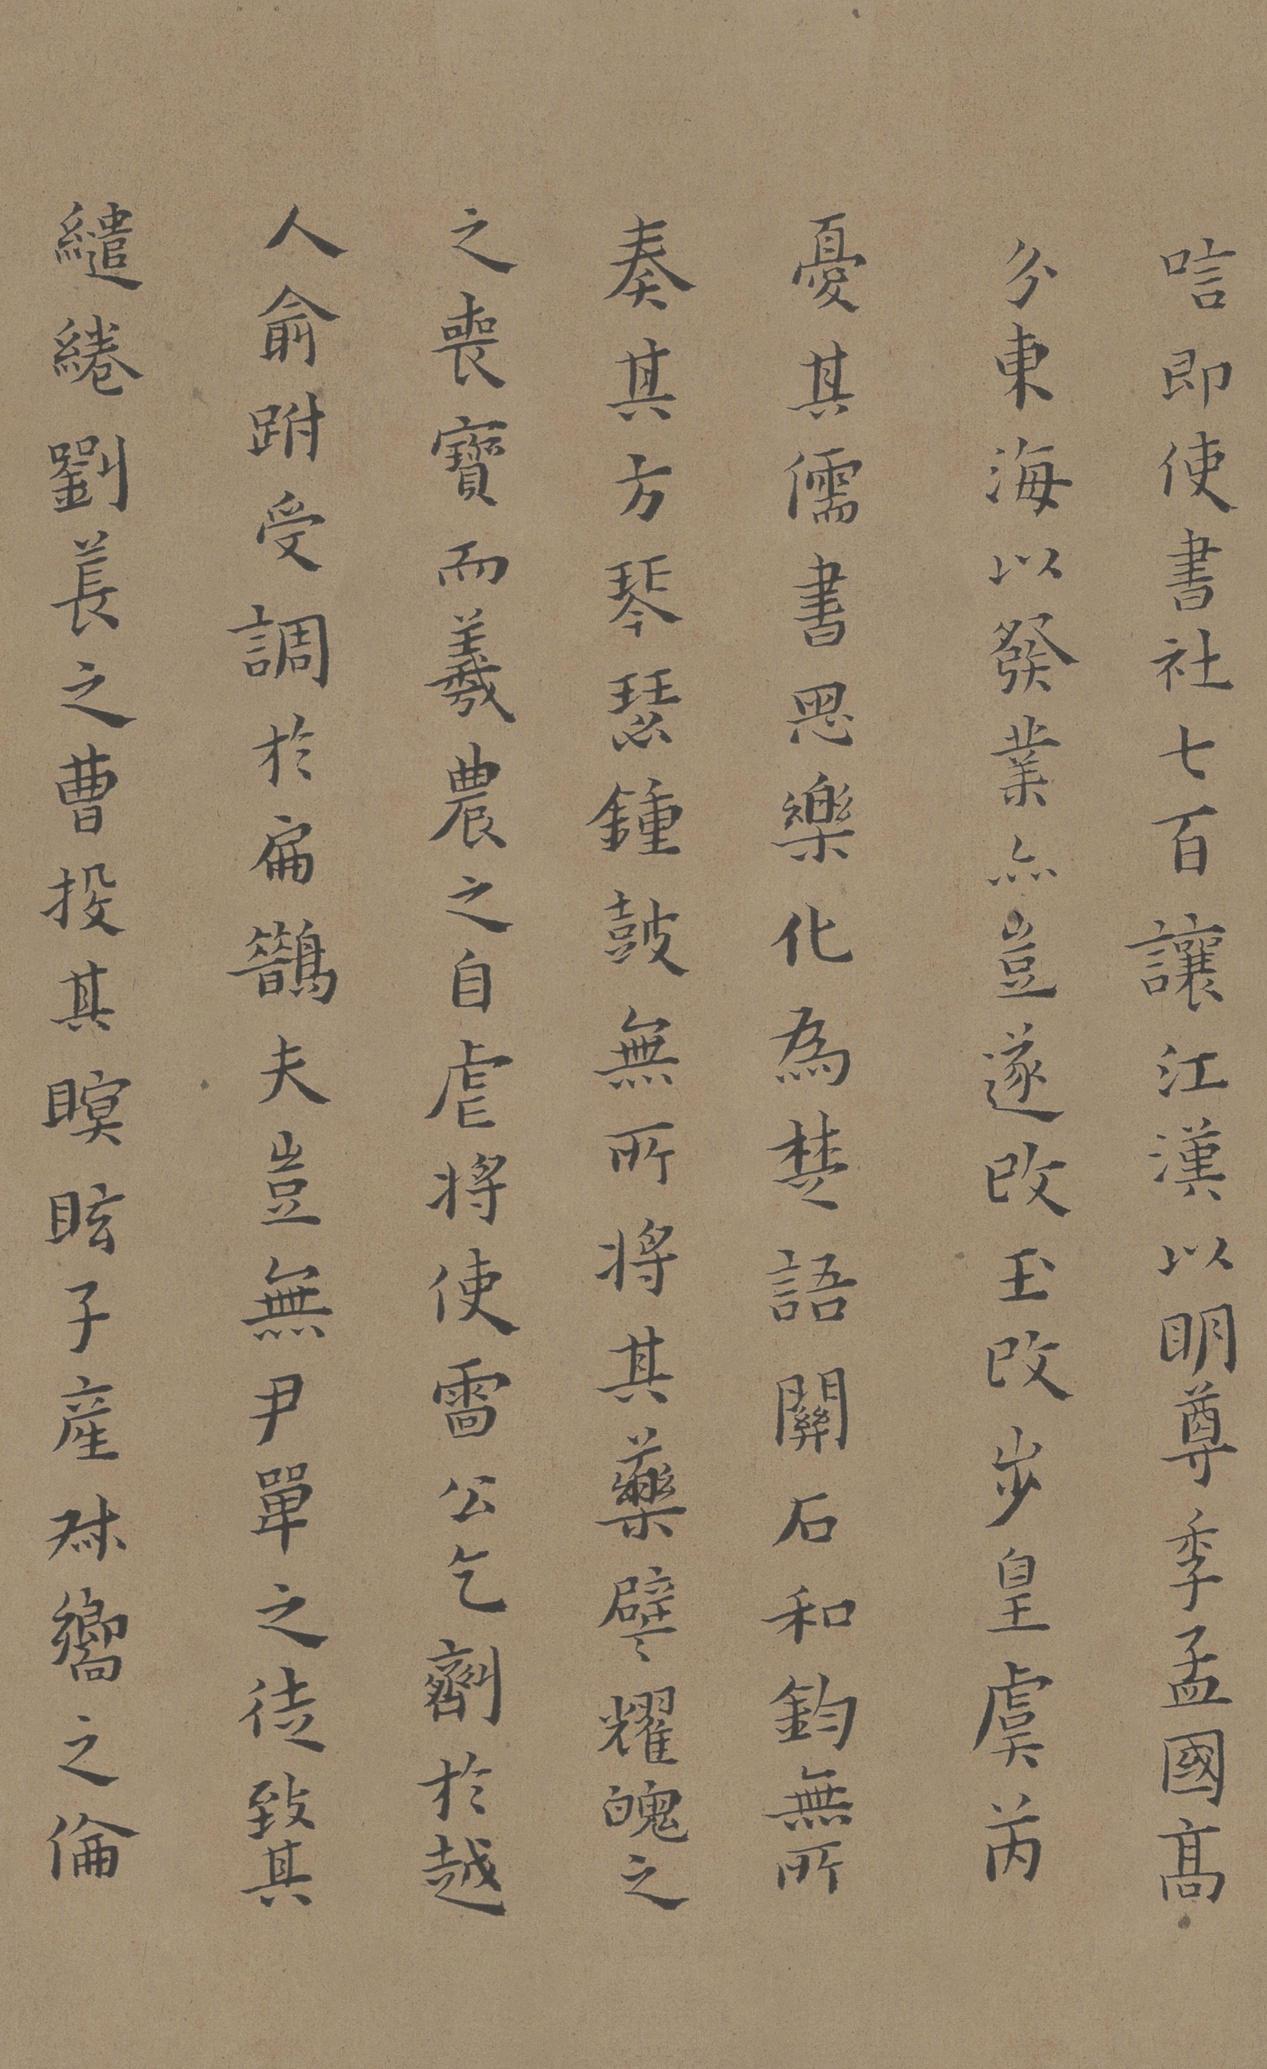 唁即使書社七百讓江漢以明尊季孟國髙
分東海以發業亦豈遂改玉改步皇虞芮
憂其儒書思樂化為楚語關石和鈞無所
奏其方琴瑟鍾鼓無所将其藥譬耀魄之
之喪寶而羲農之自虐将使雷公乞劑於越
人俞跗受調於扁鵲夫豈無尹單之徒致其
繾綣劉萇之曹投其瞑眩子產叔嚮之倫